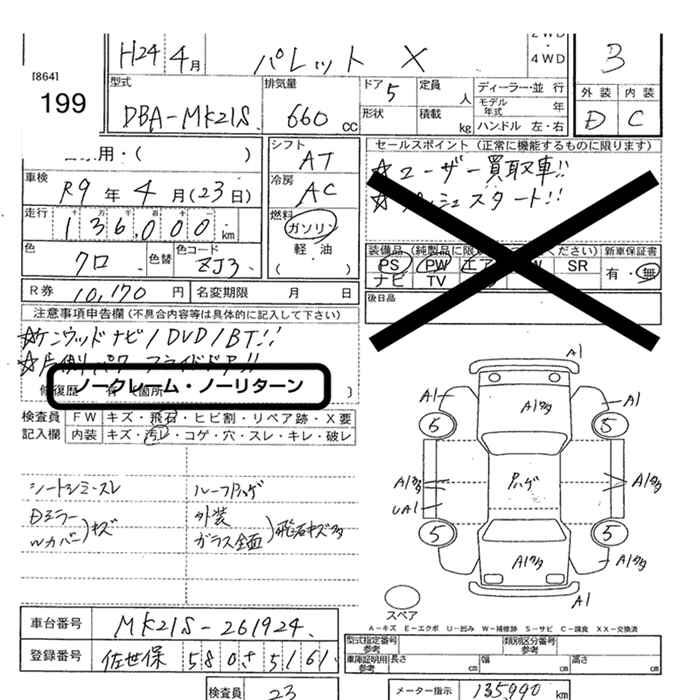 [864]
199
H24年4月
パレット X
2WD・4WD
3
型式 DBA-MK21S
排気量 660 cc
ドア 5
形状
定員 人
積載 kg
ディーラー・並 行
モデル年式 年
ハンドル 左・右
外装 D
内装 C
用・( )
シフト AT
セールスポイント(正常に機能するものに限ります)
☆ユーザー買取車!!
☆プッシュスタート!!
車検 R9年4月(23日)
冷房 AC
走行 136,000km
燃料 ガソリン
軽・油
( )
色 クロ
色替
色コード ZJ3
装備品(純製品に限 ください)
新車保証書
PS PW エア SR
ナビ TV
有・無
R券 10,170円
名変期限 月 日
後日品
注意事項申告欄(不具合内容等は具体的に記入して下さい)
☆ケンウッドナビ/DVD/BT!!
☆片側パワースライドドア!!
ノークレーム・ノーリターン
修復歴
検査員記入欄
FW キズ・飛石・ヒビ割・リペア跡・X要
内装 キズ・汚レ・コゲ・穴・スレ・キレ・破レ
シートシミ・スレ
ルーフハゲ
Dミラー
Wカバー)キズ
外装
ガラス全面)飛石キズ多
A1
A1 A1多 A1
6 5
A1多 ハゲ A1多
UA1
5 5
A1多 A1多
A1
スペア
A-キズ E-エクボ U-凹み W-補修跡 S-サビ C-腐食 XX-交換済
車台番号 MK21S-261924
登録番号 佐世保 580 す 5161
型式指定番号 参考
類別区分番号 参考
車庫証明用 参考 長さ cm 幅 cm 高さ cm
検査員 23
メーター指示 135,990 km